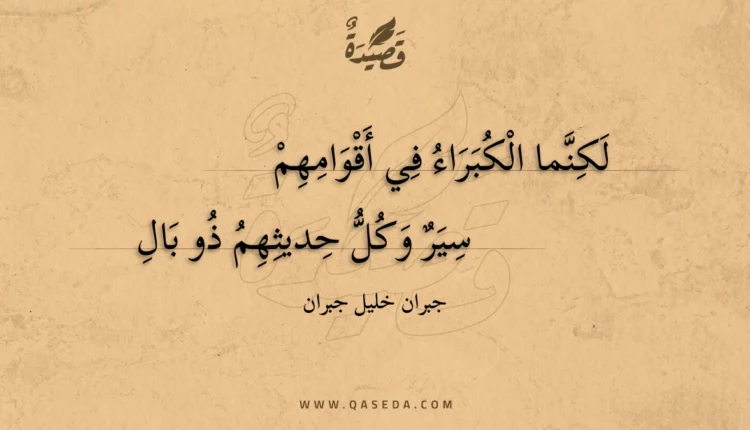 قَصِيْدَةٌ
لَكِنَّما الْكُبَرَاءُ فِي أَقْوَامِهِمْ
سِيَرٌ وَكُلُّ حِديثِهِمُ ذُو بَالِ
جبران خليل جبران
WWW.QASEDA.COM